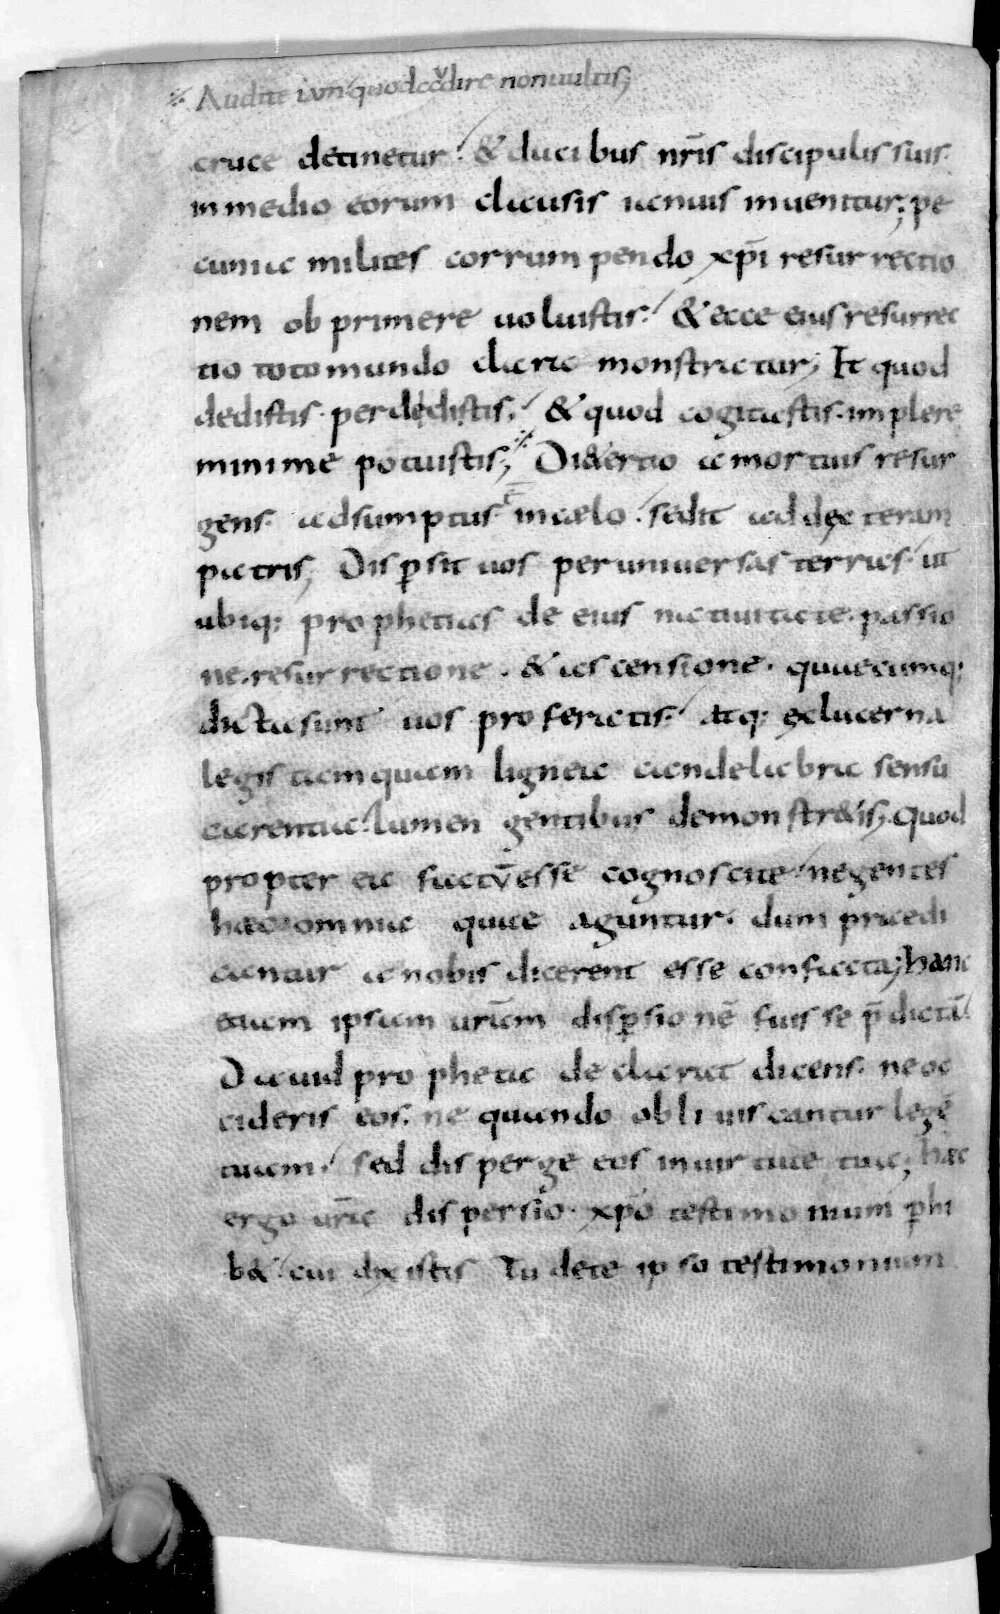 ⁒ Audite iam quod audire non uultis;
cruce detinetur. & ducibus nr̃is discipulis suis.
in medio eorum clausis ianuis inuenitur; pe
cunia milites corrumpendo xp̃i resurrectio
nem obprimere uoluistis. & ecce eius resurrec
tio toto mundo clara monstratur; Et quod
dedistis. perdedistis. & quod cogitastis. implere
minime potuistis; ⁒ Die tertio a mortuis resur
gens. adsumptus ẽ in cælo. sedit ad dexteram
patris; Dispersit uos per uniuersas terras. ut
ubiq; prophetias de eius natiuitate. passio
ne. resurrectione. & ascensione. quaecumq;
dicta sunt uos proferatis. Atq; ex lucerna
legis tamquam lignea candelabra sensu
carentia. lumen gentibus demonstretis. Quod
propter ea factũ esse cognoscite. ne gentes
haec omnia quae aguntur. dum praedi
cantur a nobis dicerent esse conficta; hanc
etiam ipsam ur̃am disp̱sionẽ fuisse p̃dictã
Dauid propheta declarat dicens. ne oc
cideris eos. ne quando obliuiscantur legẽ
tuam. sed disperge eos in uirtute tua; haec
ergo ur̃a dispersio. xp̃o testimonium p̱hi
b&. cui dixistis Tu de te ipso testimonium